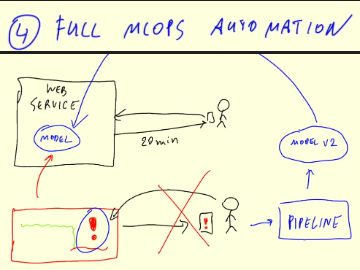 4 FULL MLOPS AUTOMATION
WEB
SERVICE
MODEL
20min
MODEL V2
!
!
PIPELINE